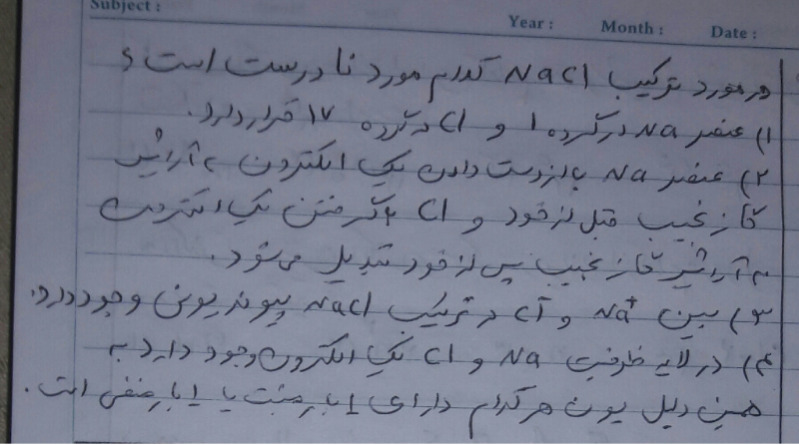 Subject :
Year : Month : Date :
در مورد ترکیب NaCl کدام مورد نادرست است؟
۱) عنصر Na در گروه ۱ و Cl در گروه ۱۷ قرار دارد.
۲) عنصر Na با از دست دادن یک الکترون به آرایش
گاز نجیب قبل از خود و Cl با گرفتن یک الکترون
به آرایش گاز نجیب پس از خود تبدیل می‌شود.
۳) بین Na⁺ و Cl⁻ در ترکیب NaCl پیوند یونی وجود دارد.
۴) در لایه ظرفیت Na و Cl یک الکترون وجود دارد به
همین دلیل یون هر کدام دارای ۱ بار مثبت یا ۱ بار منفی است.